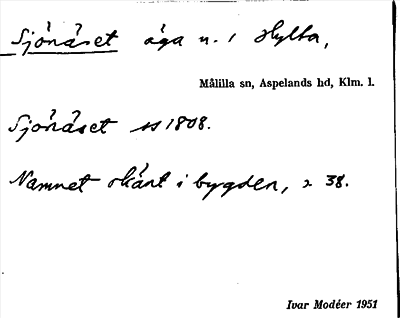 Sjönäset äga n. i Hylta,
Målilla sn, Aspelands hd, Klm. l.
Sjönäset 1808.
Namnet okänt i bygden, 38.
Ivar Modéer 1951